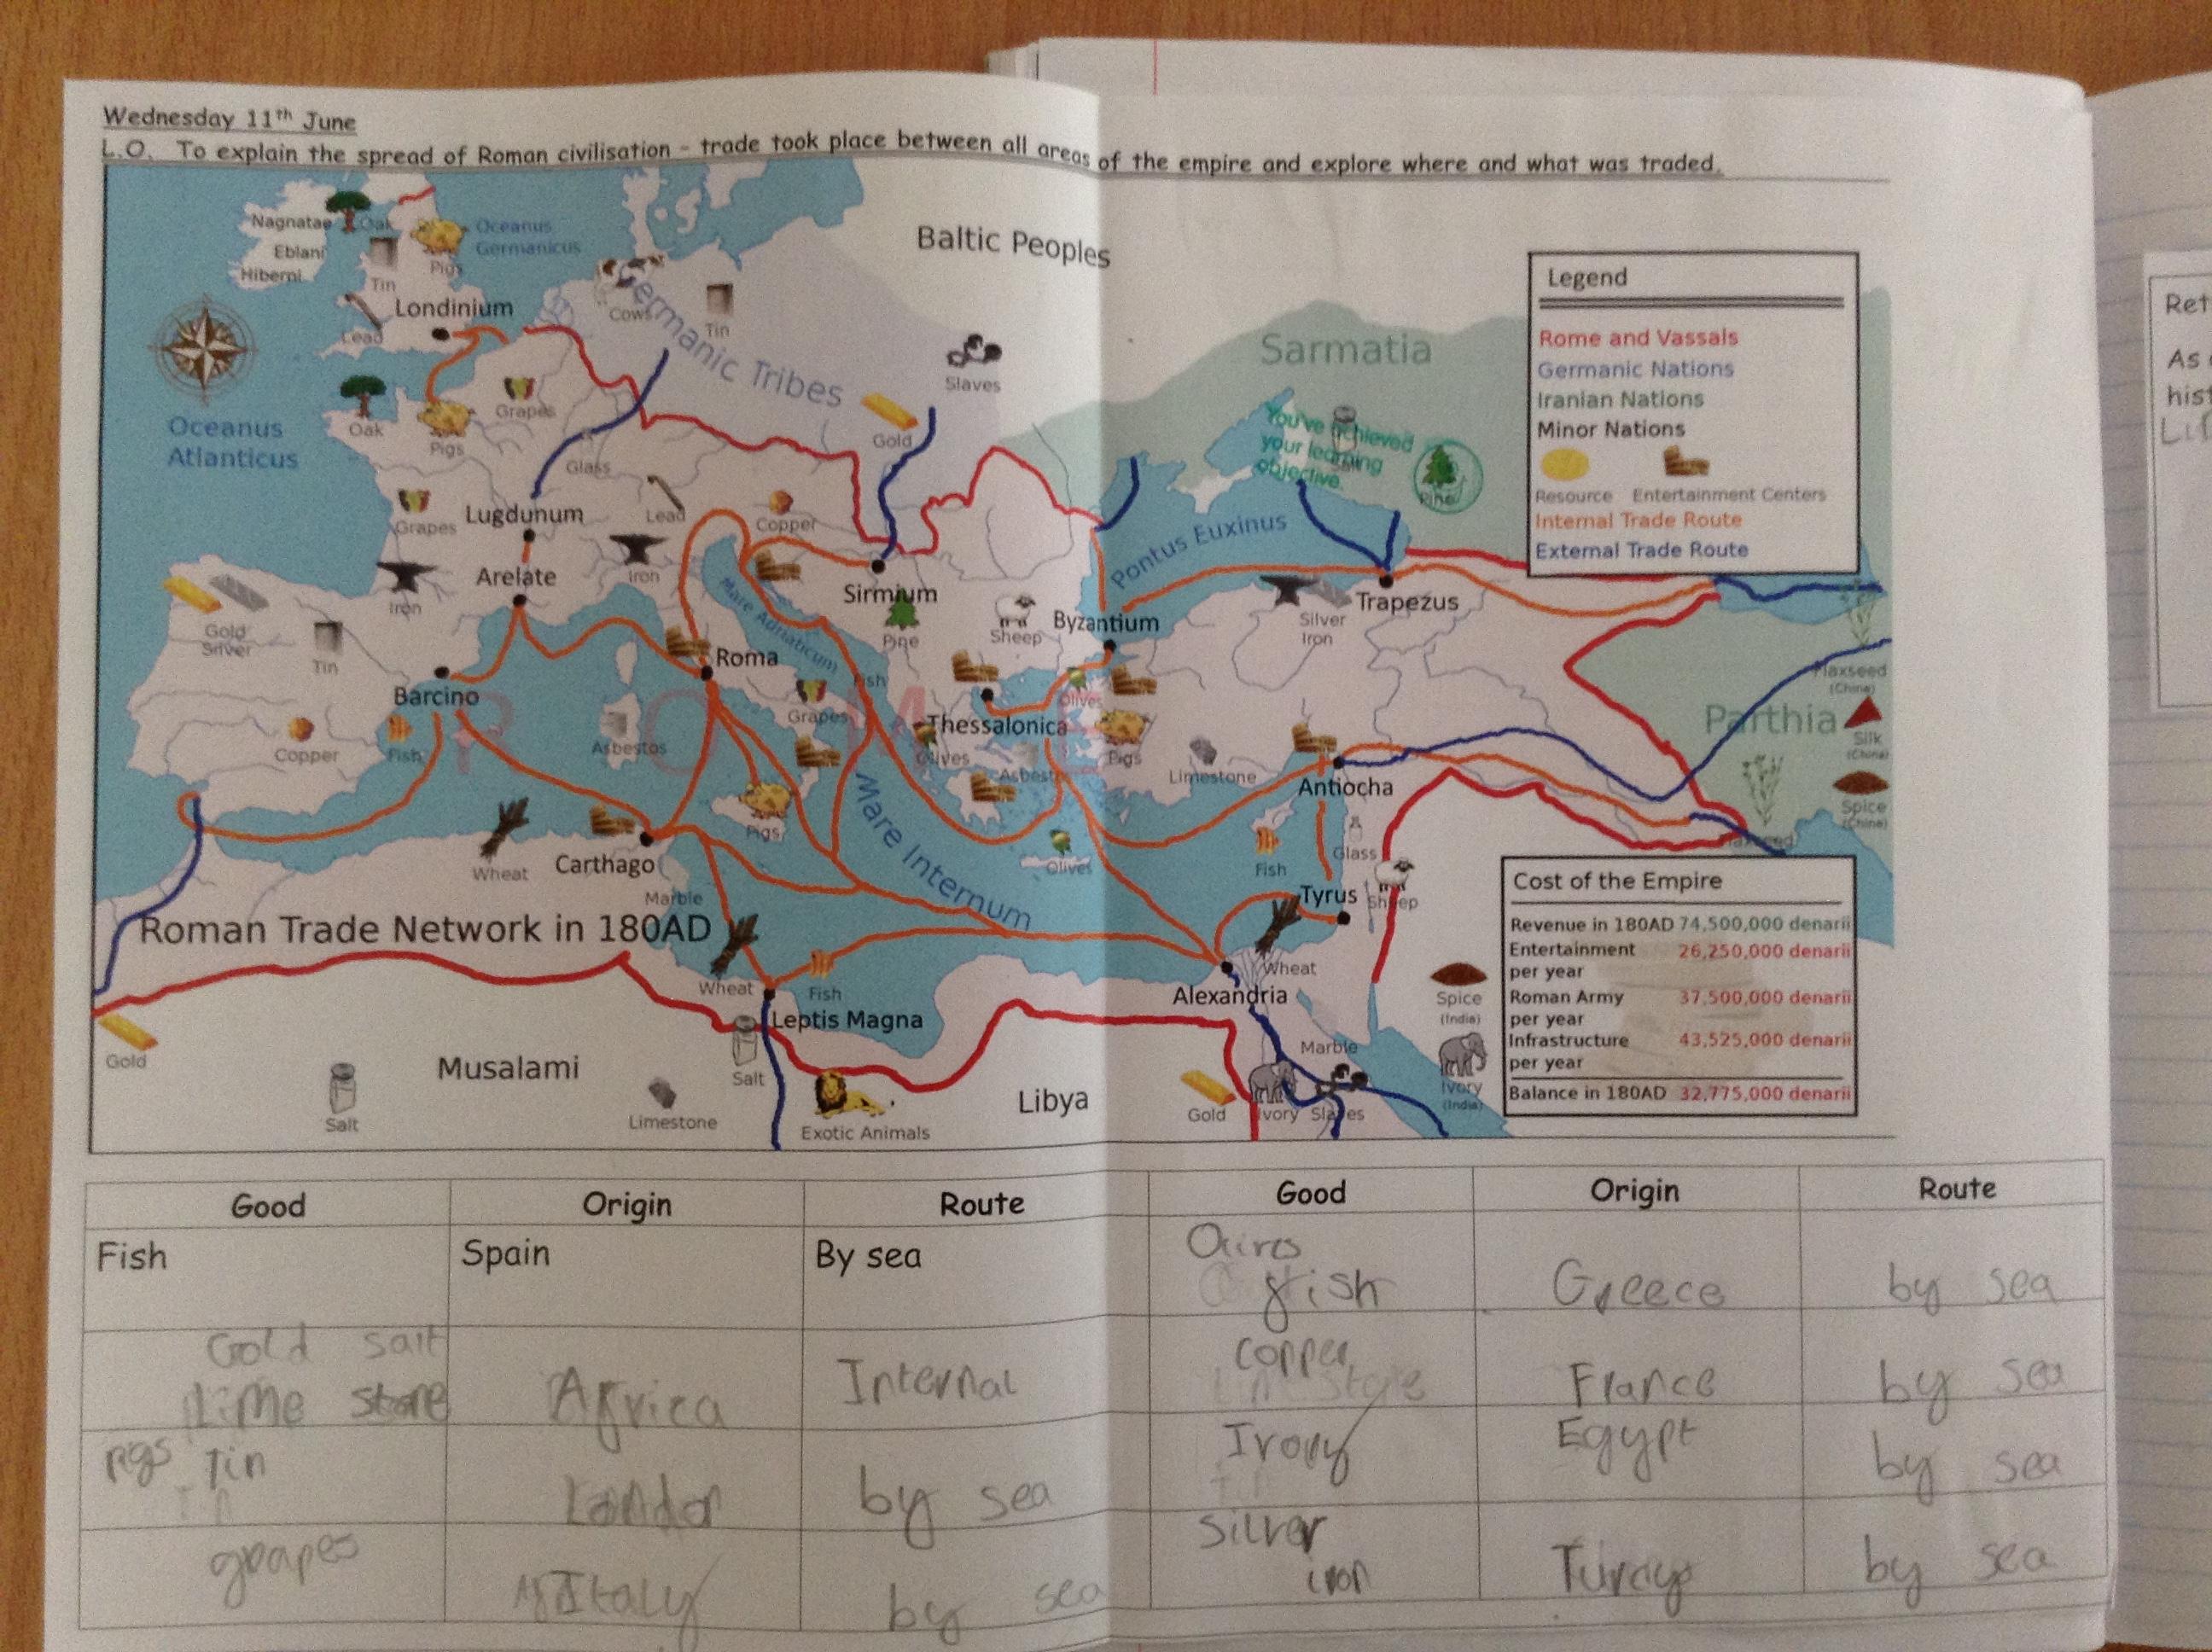 Wednesday 11th June
L.O. To explain the spread of Roman civilisation - trade took place between all areas of the empire and explore where and what was traded.
Nagnatae
Oak
Eblani
Hiberni
Tin
Pigs
Oceanus
Germanicus
Londinium
Lead
Cows
Tin
Germanic Tribes
Baltic Peoples
Slaves
Gold
Sarmatia
You've achieved
your learning
objective.
Pine
Oceanus
Atlanticus
Oak
Pigs
Grapes
Glass
Grapes
Lugdunum
Lead
Copper
Arelate
Iron
Iron
Sirmium
Pine
Sheep
Byzantium
Pontus Euxinus
Silver
Iron
Trapezus
Gold
Silver
Tin
Barcino
Copper
Fish
Asbestos
Roma
Mare Adriaticum
Fish
Grapes
ROME
Thessalonica
Olives
Olives
Asbestos
Pigs
Limestone
Antiocha
Parthia
Flaxseed
(China)
Silk
(China)
Spice
(China)
Flaxseed
Wheat
Carthago
Marble
Pigs
Mare Internum
Olives
Fish
Glass
Tyrus
Sheep
Roman Trade Network in 180AD
Wheat
Fish
Leptis Magna
Wheat
Alexandria
Spice
(India)
Ivory
(India)
Marble
Gold
Ivory
Slaves
Gold
Salt
Musalami
Salt
Limestone
Exotic Animals
Libya
Legend
Rome and Vassals
Germanic Nations
Iranian Nations
Minor Nations
Resource Entertainment Centers
Internal Trade Route
External Trade Route
Cost of the Empire
Revenue in 180AD 74,500,000 denarii
Entertainment 26,250,000 denarii
per year
Roman Army 37,500,000 denarii
per year
Infrastructure 43,525,000 denarii
per year
Balance in 180AD 32,775,000 denarii
Good Origin Route Good Origin Route
Fish Spain By sea
fish Greece by sea
Gold salt
Lime stone Africa Internal
copper France by sea
pigs Tin
London by sea
Ivory Egypt by sea
grapes Italy by sea
Silver
iron Turcye by sea
Ret
As
hist